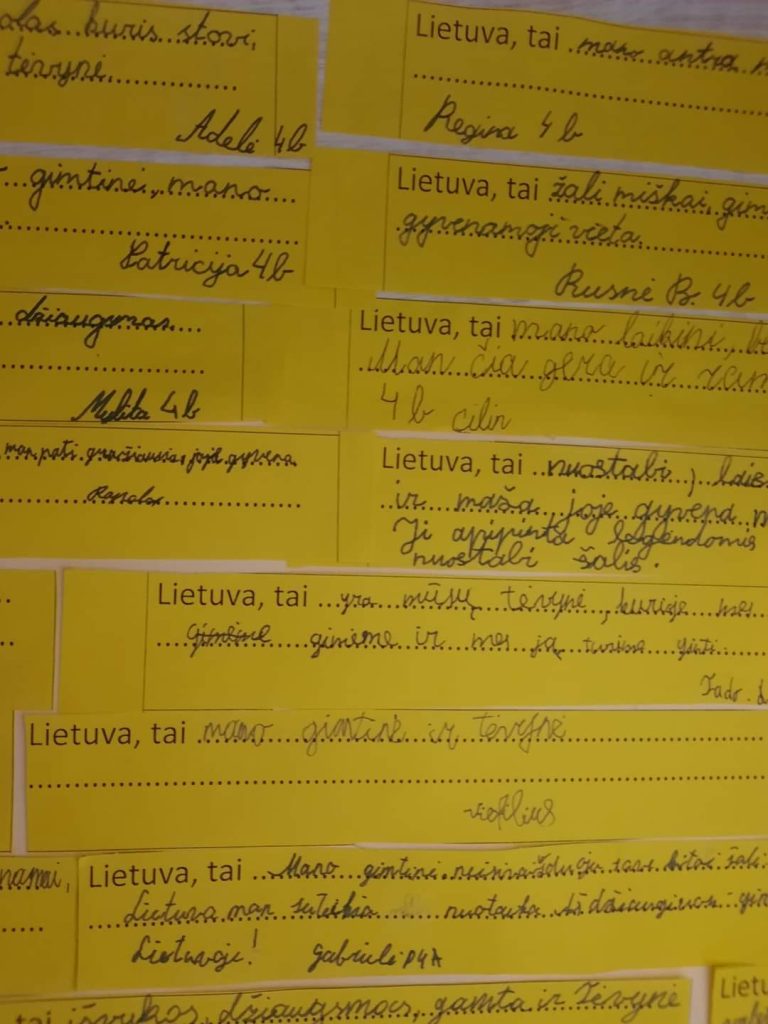 kuris stovi,
tėvynė
Adelė 4b
Lietuva, tai mano antra
Regina 4 b
gimtinė, mano
Patricija 4b
Lietuva, tai žali miškai, gim
gyvenamoji vieta
Rusnė B. 4b
džiaugsmas
4b
Lietuva, tai mano laikini, be
Man čia gera ir ram
4 b
man pati gražiausia, joje gyvena
Lietuva, tai nuostabi,
ir maža joje gyvena m
Ji apipinta legendomis
nuostabi šalis.
Lietuva, tai yra mūsų tėvynė, kurioje mes
gimėme ir mes ją turime ginti
Lietuva, tai mano gimtinė ir tėvynė
namai,
Lietuva, tai Mano gimtinė
Lietuva man suteikia nuotaika Aš džiaugiuosi
Lietuvoje! Gabrielė P4A
tai džiaugsmas, gamta ir Tėvynė
Lietu